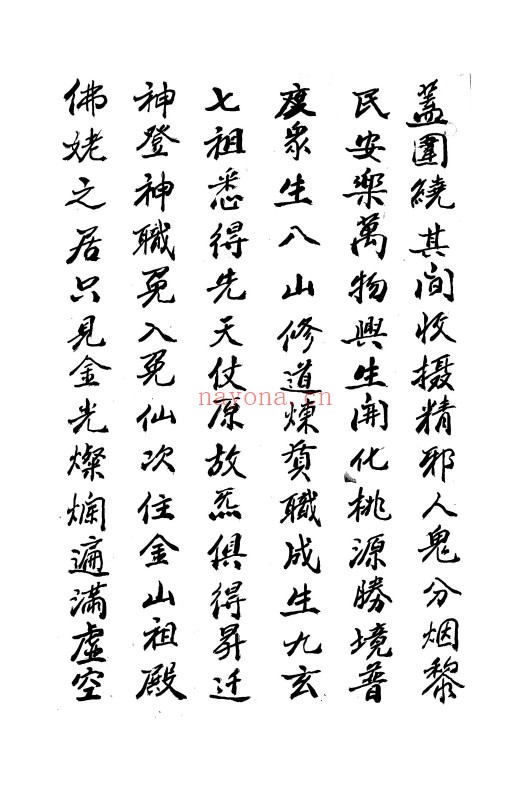 蓋圍繞其间收摄精邪人鬼分烟黎
民安樂萬物興生開化桃源勝境普
度众生八山修道煉貭職成生九玄
七祖悉得先天仗原故炁俱得昇迁
神登神職免入免仙次住金山祖殿
佛姥之居只見金光燦爛遍滿虛空
nayona.cn